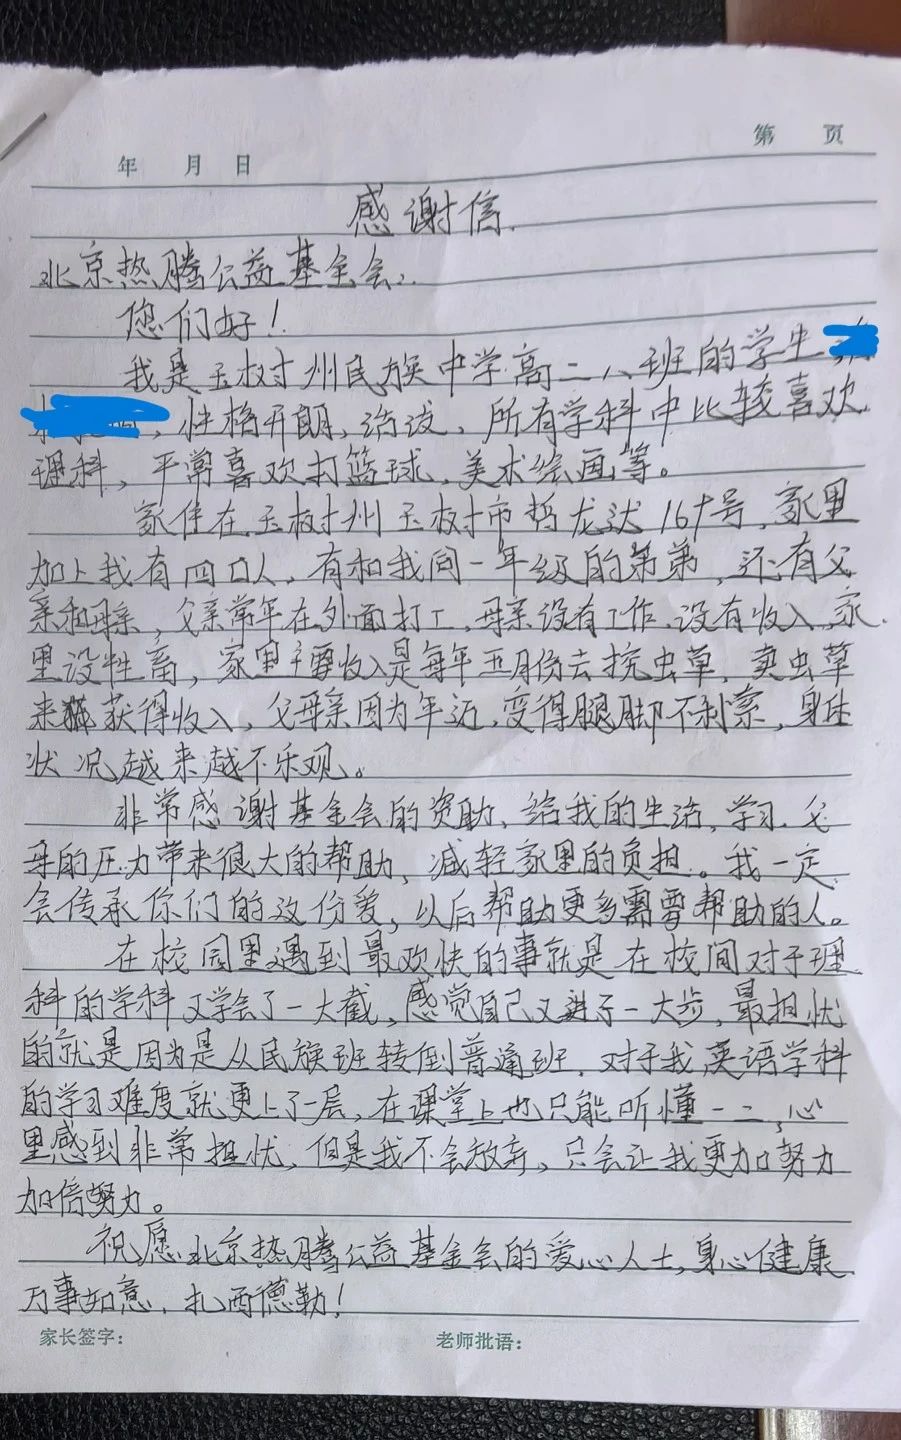 第 页
年 月 日
感谢信.
北京热腾公益基金会:
您们好!
我是玉树州民族中学高二八班的学生
,性格开朗,活泼、所有学科中比较喜欢
理科,平常喜欢打篮球,美术绘画等。
家住在玉树州玉树市哲龙达169号,家里
加上我有四口人,有和我同一年级的弟弟,还有父
亲和母亲,父亲常年在外面打工,母亲没有工作.没有收入,家
里没牲畜,家里主要收入是每年五月份去挖虫草,卖虫草
来获得收入,父母亲因为年迈,变得腿脚不利索,身体
状况越来越不乐观。
非常感谢基金会的资助、给我的生活,学习.父
母的压力带来很大的帮助,减轻家里的负担.。我一定
会传承你们的这份爱,以后帮助更多需要帮助的人。
在校园里遇到最欢快的事就是在校间对于理
科的学科又学会了一大截,感觉自己又进了一大步,最担忧
的就是因为是从民族班转倒普通班,对于我英语学科
的学习难度就更上了一层,在课堂上也只能听懂一二,心
里感到非常担忧,但是我不会放弃,只会让我更加努力
加倍努力。
祝愿北京热腾公益基金会的爱心人士,身心健康
万事如意,扎西德勒!
家长签字: 老师批语: